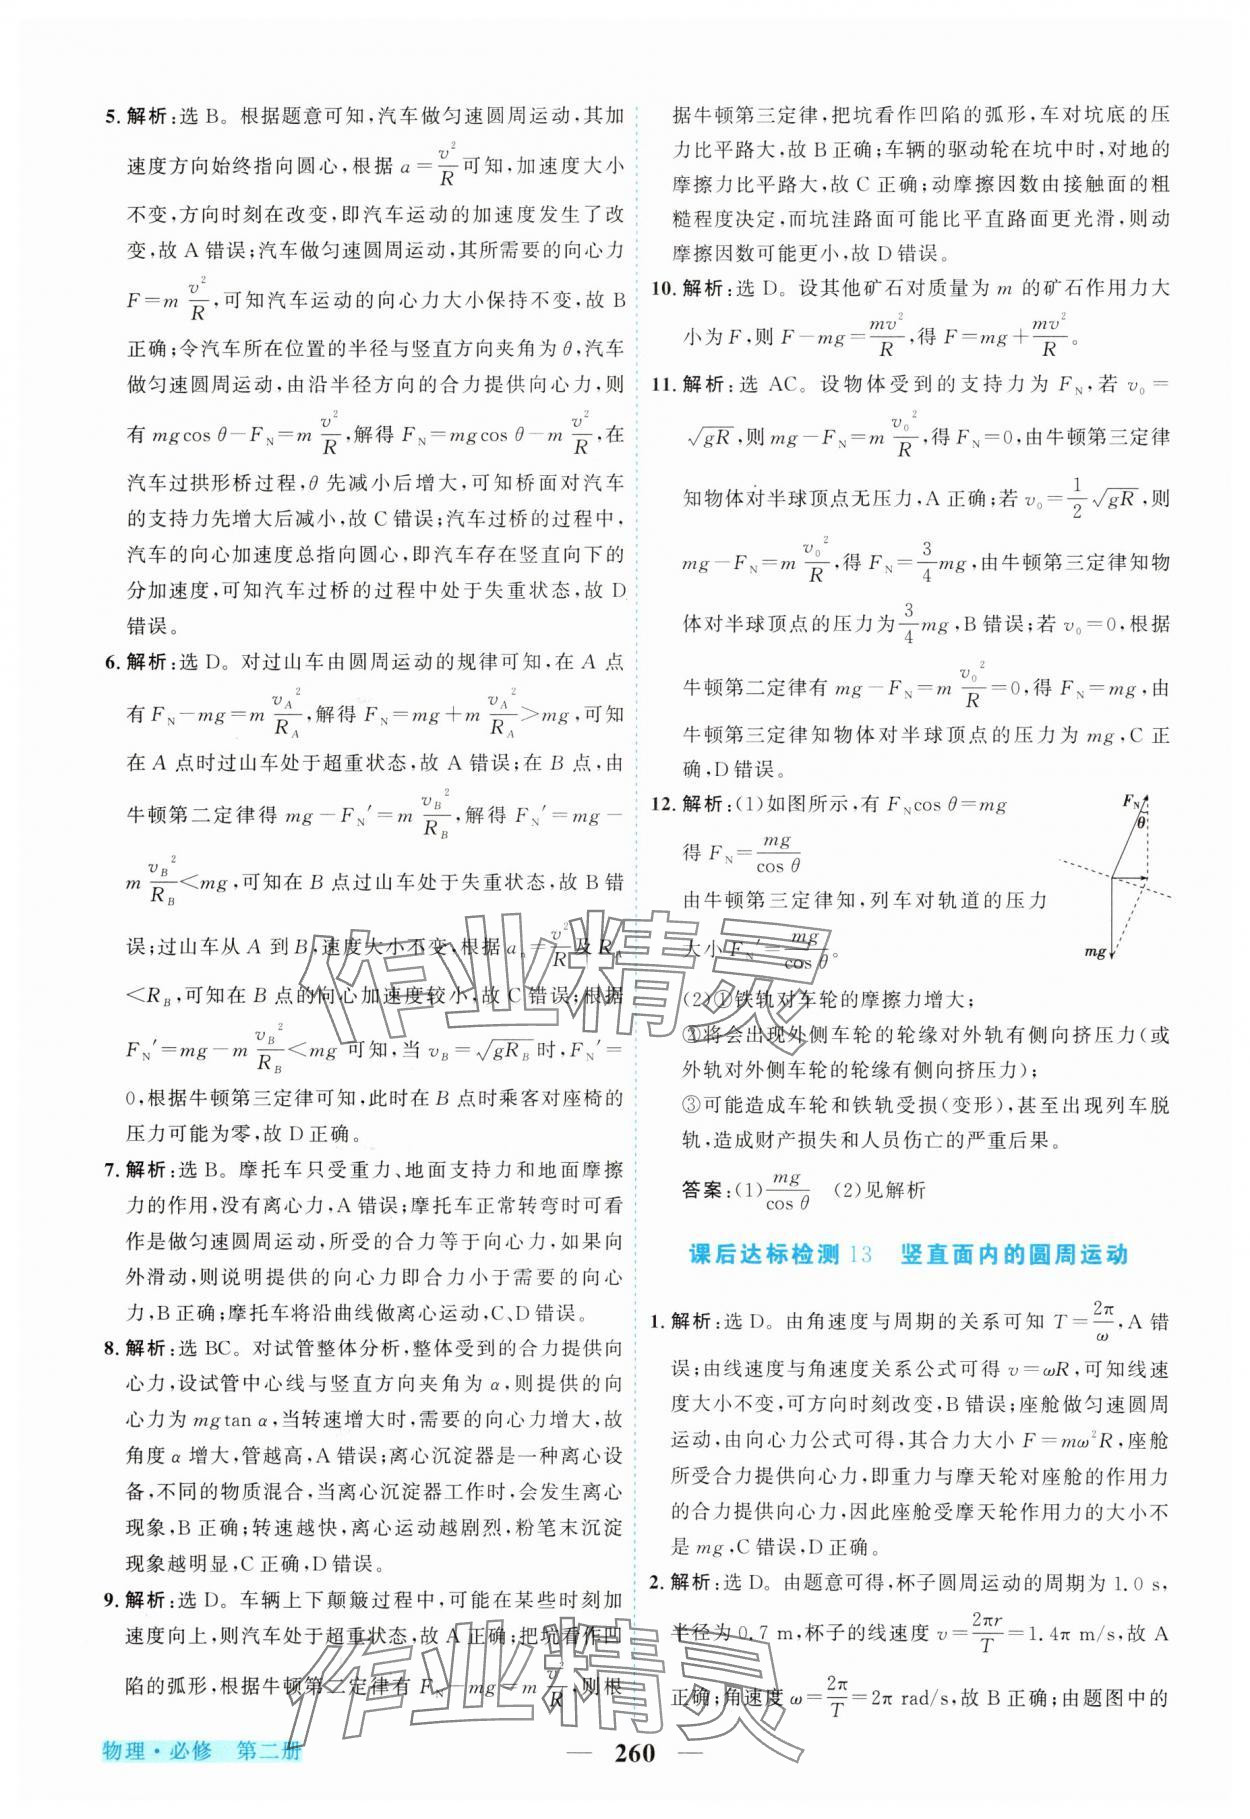 5. 解析:选 B。根据题意可知,汽车做匀速圆周运动,其加
速度方向始终指向圆心,根据 a=v²/R可知,加速度大小
不变,方向时刻在改变,即汽车运动的加速度发生了改
变,故 A 错误;汽车做匀速圆周运动,其所需要的向心力
F=m v²/R,可知汽车运动的向心力大小保持不变,故 B
正确;令汽车所在位置的半径与竖直方向夹角为θ,汽车
做匀速圆周运动,由沿半径方向的合力提供向心力,则
有 mgcos θ-F_N=m v²/R,解得 F_N=mgcos θ-m v²/R,在
汽车过拱形桥过程,θ 先减小后增大,可知桥面对汽车
的支持力先增大后减小,故 C 错误;汽车过桥的过程中,
汽车的向心加速度总指向圆心,即汽车存在竖直向下的
分加速度,可知汽车过桥的过程中处于失重状态,故 D
错误。
6. 解析:选 D。对过山车由圆周运动的规律可知,在 A 点
有 F_N-mg=m v_A²/R_A,解得 F_N=mg+m v_A²/R_A>mg,可知
在 A 点时过山车处于超重状态,故 A 错误;在 B 点,由
牛顿第二定律得 mg-F_N′=m v_B²/R_B,解得 F_N′=mg-
m v_B²/R_B<mg,可知在 B 点过山车处于失重状态,故 B 错
误;过山车从 A 到 B,速度大小不变,根据 a_n=v²/R及 R_A
<R_B,可知在 B 点的向心加速度较小,故 C 错误;根据
F_N′=mg-m v_B²/R_B<mg 可知,当 v_B=√(gR_B)时,F_N′=
0,根据牛顿第三定律可知,此时在 B 点时乘客对座椅的
压力可能为零,故 D 正确。
7. 解析:选 B。摩托车只受重力、地面支持力和地面摩擦
力的作用,没有离心力,A 错误;摩托车正常转弯时可看
作是做匀速圆周运动,所受的合力等于向心力,如果向
外滑动,则说明提供的向心力即合力小于需要的向心
力,B 正确;摩托车将沿曲线做离心运动,C、D 错误。
8. 解析:选 BC。对试管整体分析,整体受到的合力提供向
心力,设试管中心线与竖直方向夹角为 α,则提供的向
心力为 mgtan α,当转速增大时,需要的向心力增大,故
角度 α 增大,管越高,A 错误;离心沉淀器是一种离心设
备,不同的物质混合,当离心沉淀器工作时,会发生离心
现象,B 正确;转速越快,离心运动越剧烈,粉笔末沉淀
现象越明显,C 正确,D 错误。
9. 解析:选 D。车辆上下颠簸过程中,可能在某些时刻加
速度向上,则汽车处于超重状态,故 A 正确;把坑看作凹
陷的弧形,根据牛顿第二定律有 F_N-mg=m v²/R,则根
据牛顿第三定律,把坑看作凹陷的弧形,车对坑底的压
力比平路大,故 B 正确;车辆的驱动轮在坑中时,对地的
摩擦力比平路大,故 C 正确;动摩擦因数由接触面的粗
糙程度决定,而坑洼路面可能比平直路面更光滑,则动
摩擦因数可能更小,故 D 错误。
10. 解析:选 D。设其他矿石对质量为 m 的矿石作用力大
小为 F,则 F-mg=mv²/R,得 F=mg+mv²/R。
11. 解析:选 AC。设物体受到的支持力为 F_N,若 v₀=
√(gR),则 mg-F_N=m v₀²/R,得 F_N=0,由牛顿第三定律
知物体对半球顶点无压力,A 正确;若 v₀=1/2√(gR),则
mg-F_N=m v₀²/R,得 F_N=3/4mg,由牛顿第三定律知物
体对半球顶点的压力为3/4mg,B 错误;若 v₀=0,根据
牛顿第二定律有 mg-F_N=m v₀²/R=0,得 F_N=mg,由
牛顿第三定律知物体对半球顶点的压力为 mg,C 正
确,D 错误。
12. 解析:(1)如图所示,有 F_Ncos θ=mg
得 F_N=mg/cos θ
由牛顿第三定律知,列车对轨道的压力
大小 F_N′=mg/cos θ。
F_N
θ
mg
(2)①铁轨对车轮的摩擦力增大;
②将会出现外侧车轮的轮缘对外轨有侧向挤压力(或
外轨对外侧车轮的轮缘有侧向挤压力);
③可能造成车轮和铁轨受损(变形),甚至出现列车脱
轨,造成财产损失和人员伤亡的严重后果。
答案:(1)mg/cos θ (2)见解析
课后达标检测 13 竖直面内的圆周运动
1. 解析:选 D。由角速度与周期的关系可知 T=2π/ω,A 错
误;由线速度与角速度关系公式可得 v=ωR,可知线速
度大小不变,可方向时刻改变,B 错误;座舱做匀速圆周
运动,由向心力公式可得,其合力大小 F=mω²R,座舱
所受合力提供向心力,即重力与摩天轮对座舱的作用力
的合力提供向心力,因此座舱受摩天轮作用力的大小不
是 mg,C 错误,D 正确。
2. 解析:选 D。由题意可得,杯子圆周运动的周期为 1.0 s,
半径为 0.7 m,杯子的线速度 v=2πr/T=1.4π m/s,故 A
正确;角速度 ω=2π/T=2π rad/s,故 B 正确;由题图中的
物理·必修 第二册
260
作业精灵
作业精灵